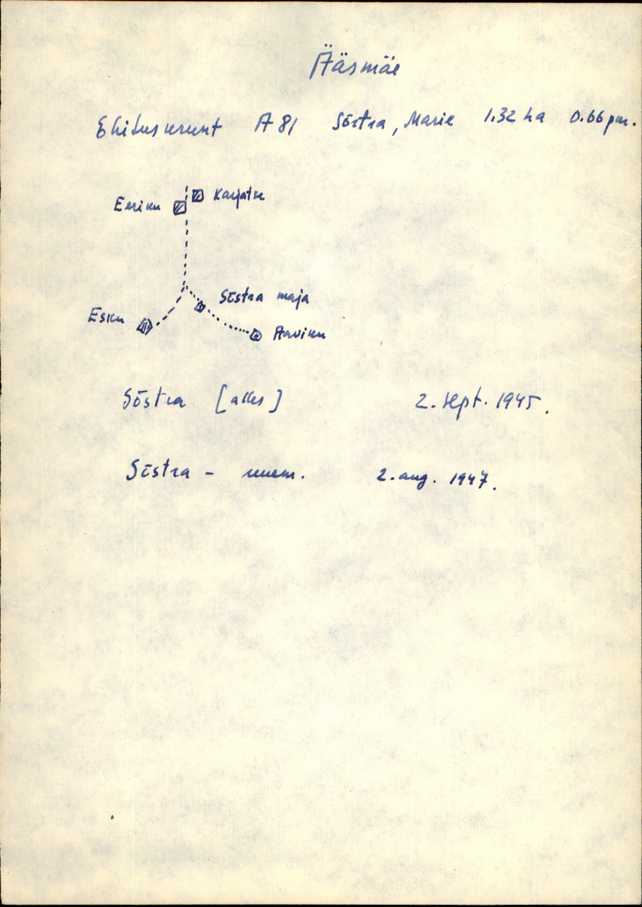 Ääsmäe
Ehituskrunt A 81 Sõstra, Marie 1.32 ha 0.66 pm.
Eeriku Karjatse
Sõstra maja
Esku Aaviku
Sõstra [alles] 2. sept. 1945.
Sõstra – 2. aug. 1947.